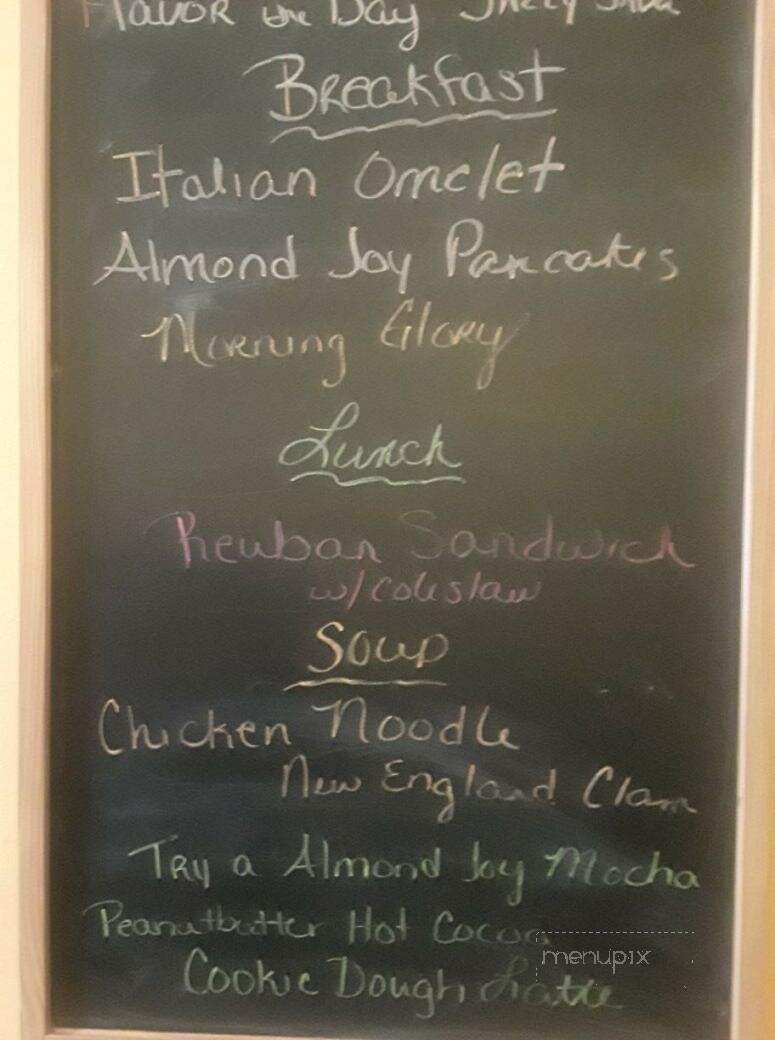 Flavor the Day
Breakfast
Italian Omelet
Almond Joy Pancakes
Morning Glory
Lunch
Reuban Sandwich
w/coleslaw
Soup
Chicken Noodle
New England Clam
Try a Almond Joy Mocha
Peanutbutter Hot Cocoa
menupix
Cookie Dough Latte